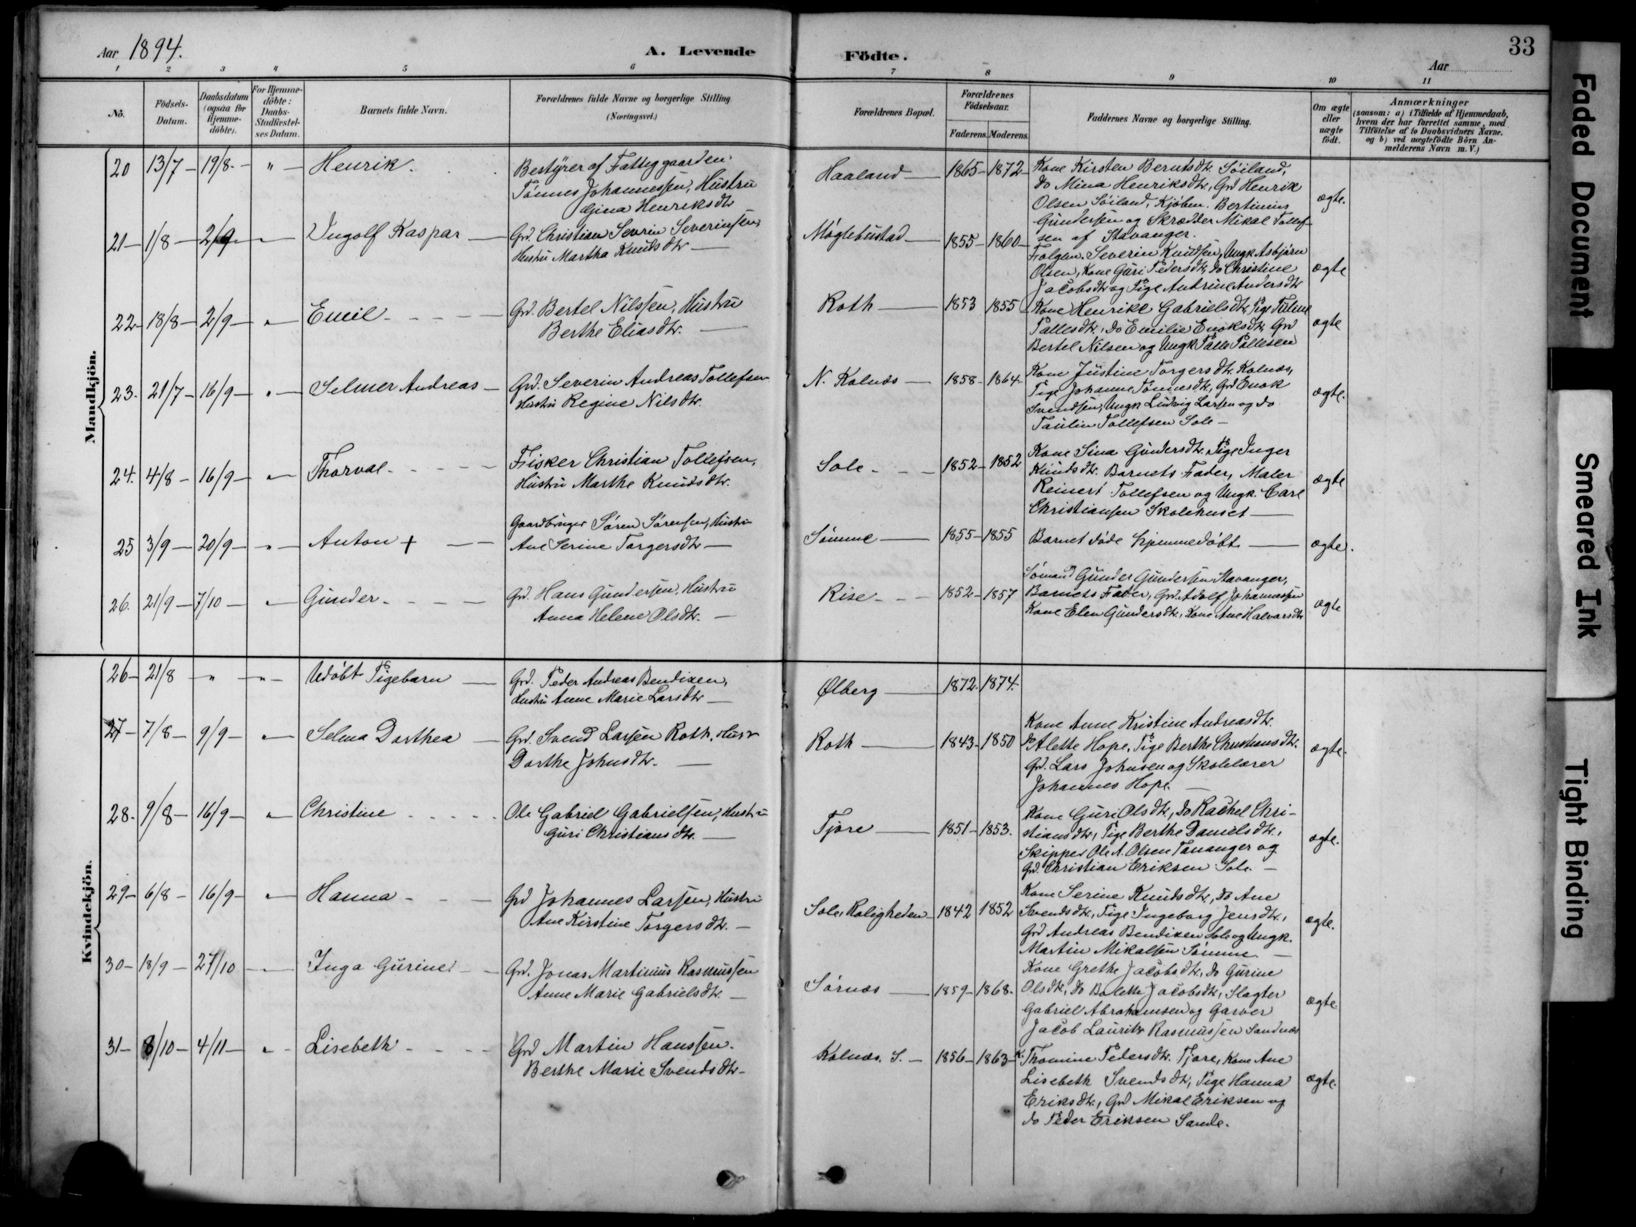 Aar 1894.
A. Levende
Födte.
33
Aar
1 2 3 4 5 6 7 8 9 10 11
No.
Födsels-Datum.
Daabsdatum (ogsaa for Hjemme-döbte).
For Hjemme-döbte: Daabs-Stadfæstel-ses Datum.
Barnets fulde Navn.
Forældrenes fulde Navne og borgerlige Stilling (Næringsvei.)
Forældrenes Bopæl.
Forældrenes Födselsaar.
Faderens. Moderens.
Faddernes Navne og borgerlige Stilling.
Om ægte eller uægte födt.
Anmærkninger
(saasom: a) i Tilfælde af Hjemmedaab, hvem der har forrettet samme, med Tilföielse af to Daabsvidners Navne. og b) ved uægtefödte Börn Anmelderens Navn m. V.)
Mandkjön.
20 13/7 - 19/8 - " - Henrik.
Bestyrer af Fattiggaarden
Tønnes Johannessen, Hustru
Gina Henriksdtr
Haaland 1865 - 1872
Kone Kirsten Berntsdtr. Søiland,
do Mina Henriksdtr, Grd Henrik
Olsen Søiland, Kjøbm. Bertinius
Gundersen og Skrædder Mikal Tollef-
sen af Stavanger.
ægte.
21 - 1/8 - 2/9 - Ingolf Kaspar
Grd. Christian Severin Severinsen,
Hustru Martha Knudsdtr
Møglebustad 1855 - 1860
Severin Knudsen, Ungk Asbjørn
Olsen, Kone Guri Pedersdtr, do Christine
Jacobsdtr og Pige Andrine Andersdtr
ægte
22 - 18/8 - 2/9 - Emil
Grd. Bertel Nilssen, Hustru
Berthe Eliasdtr.
Roth 1853 1855
Kone Henrikke Gabrielsdtr, Pige
Pallesdtr, do Emilie Enoksdtr, Grd
Bertel Nilsen og Ungk Palle Pallesen
ægte
23. 21/7 - 16/9 - Selmer Andreas
Grd. Severin Andreas Tollefsen
Hustru Regine Nilsdtr.
N. Kolnæs 1858 - 1864
Kone Justine Torgersdtr. Kolnæs,
Pige Johanne Tønnesdtr, Grd Enok
Svendsen, Ungk Ludvig Larsen og do
Paulin Tollefsen Sole -
ægte.
24. 4/8 - 16/9 - Thorval
Fisker Christian Tollefsen,
Hustru Marthe Knudsdtr.
Sole 1852 - 1852
Kone Sina Gundersdtr. Pige Inger
Knudsdtr. Barnets Fader, Maler
Reinert Tollefsen og Ungk. Carl
Christiansen Skolehuset
ægte
25 3/9 - 20/9 - Anton +
Gaardbruger Søren Sørensen, Hustru
Ane Serine Torgersdtr
Sømme 1855 - 1855
Barnet døde hjemmedøbt
ægte.
26. 21/9 - 7/10 - Gunder
Grd. Hans Gundersen, Hustru
Anna Helene Olsdtr.
Rise 1852 - 1857
Sømand Gunder Gundersen Stavanger,
Barnets Fader, Grd. Adolf Johannessen
Kone Elen Gundersdtr, Kone Ane Halvorsdtr
ægte
Kvindekjön.
26 - 21/8 - " - " - Udøbt Pigebarn
Grd. Peder Andreas Bendixen,
Hustru Anne Marie Larsdtr
Ølberg 1872 1874
27 - 7/8 - 9/9 - Selma Dorthea
Grd. Svend Larsen Roth, Hustr
Dorthe Johnsdtr.
Roth 1843 - 1850
Kone Anne Kristine Andreasdtr.
do Alette Hope, Pige Berthe Christiansdtr.
Grd. Lars Johnsen og Skolelærer
Johannes Hope.
ægte.
28. 9/8 - 16/9 - Christine
Ole Gabriel Gabrielsen, Hustru
Guri Christiansdtr.
Tjore 1851 - 1853.
Kone Guri Olsdtr, do Rachel Chri-
stiansdtr, Pige Berthe Danielsdtr,
Skipper Ole A. Olsen Tananger og
Grd. Christian Eriksen Sole. -
ægte.
29 - 6/8 - 16/9 - Hanna
Grd Johannes Larsen, Hustru
Ane Kirstine Torgersdtr. -
Sole, Roligheden 1842 1852
Kone Serine Knudsdtr, do Ane
Svendsdtr, Pige Ingeborg Jensdtr,
Grd Andreas Bendixen Sole og Ungk.
Martin Mikalsen Sømme. -
ægte.
30 - 18/9 - 27/10 - Inga Gurine
Grd. Jonas Martinius Rasmussen
Anne Marie Gabrielsdtr. -
Sørnæs 1859 - 1868.
Kone Grethe Jacobsdtr, do Gurine
Olsdtr, do Bolette Jacobsdtr, Slagter
Gabriel Abrahamsen og Garver
Jacob Lauritz Rasmussen Sandnæs
ægte
31 - 8/10 - 4/11 - Lisebeth
Grd Martin Hanssen.
Berthe Marie Svendsdtr -
Kolnæs. S. - 1856 - 1863
K. Thomine Pedersdtr. Tjore, Kone Ane
Lisebeth Svendsdtr, Pige Hanna
Eriksdtr, Grd Mikal Eriksen og
do Peder Eriksen Sande.
ægte.
Faded Document
Smeared Ink
Tight Binding